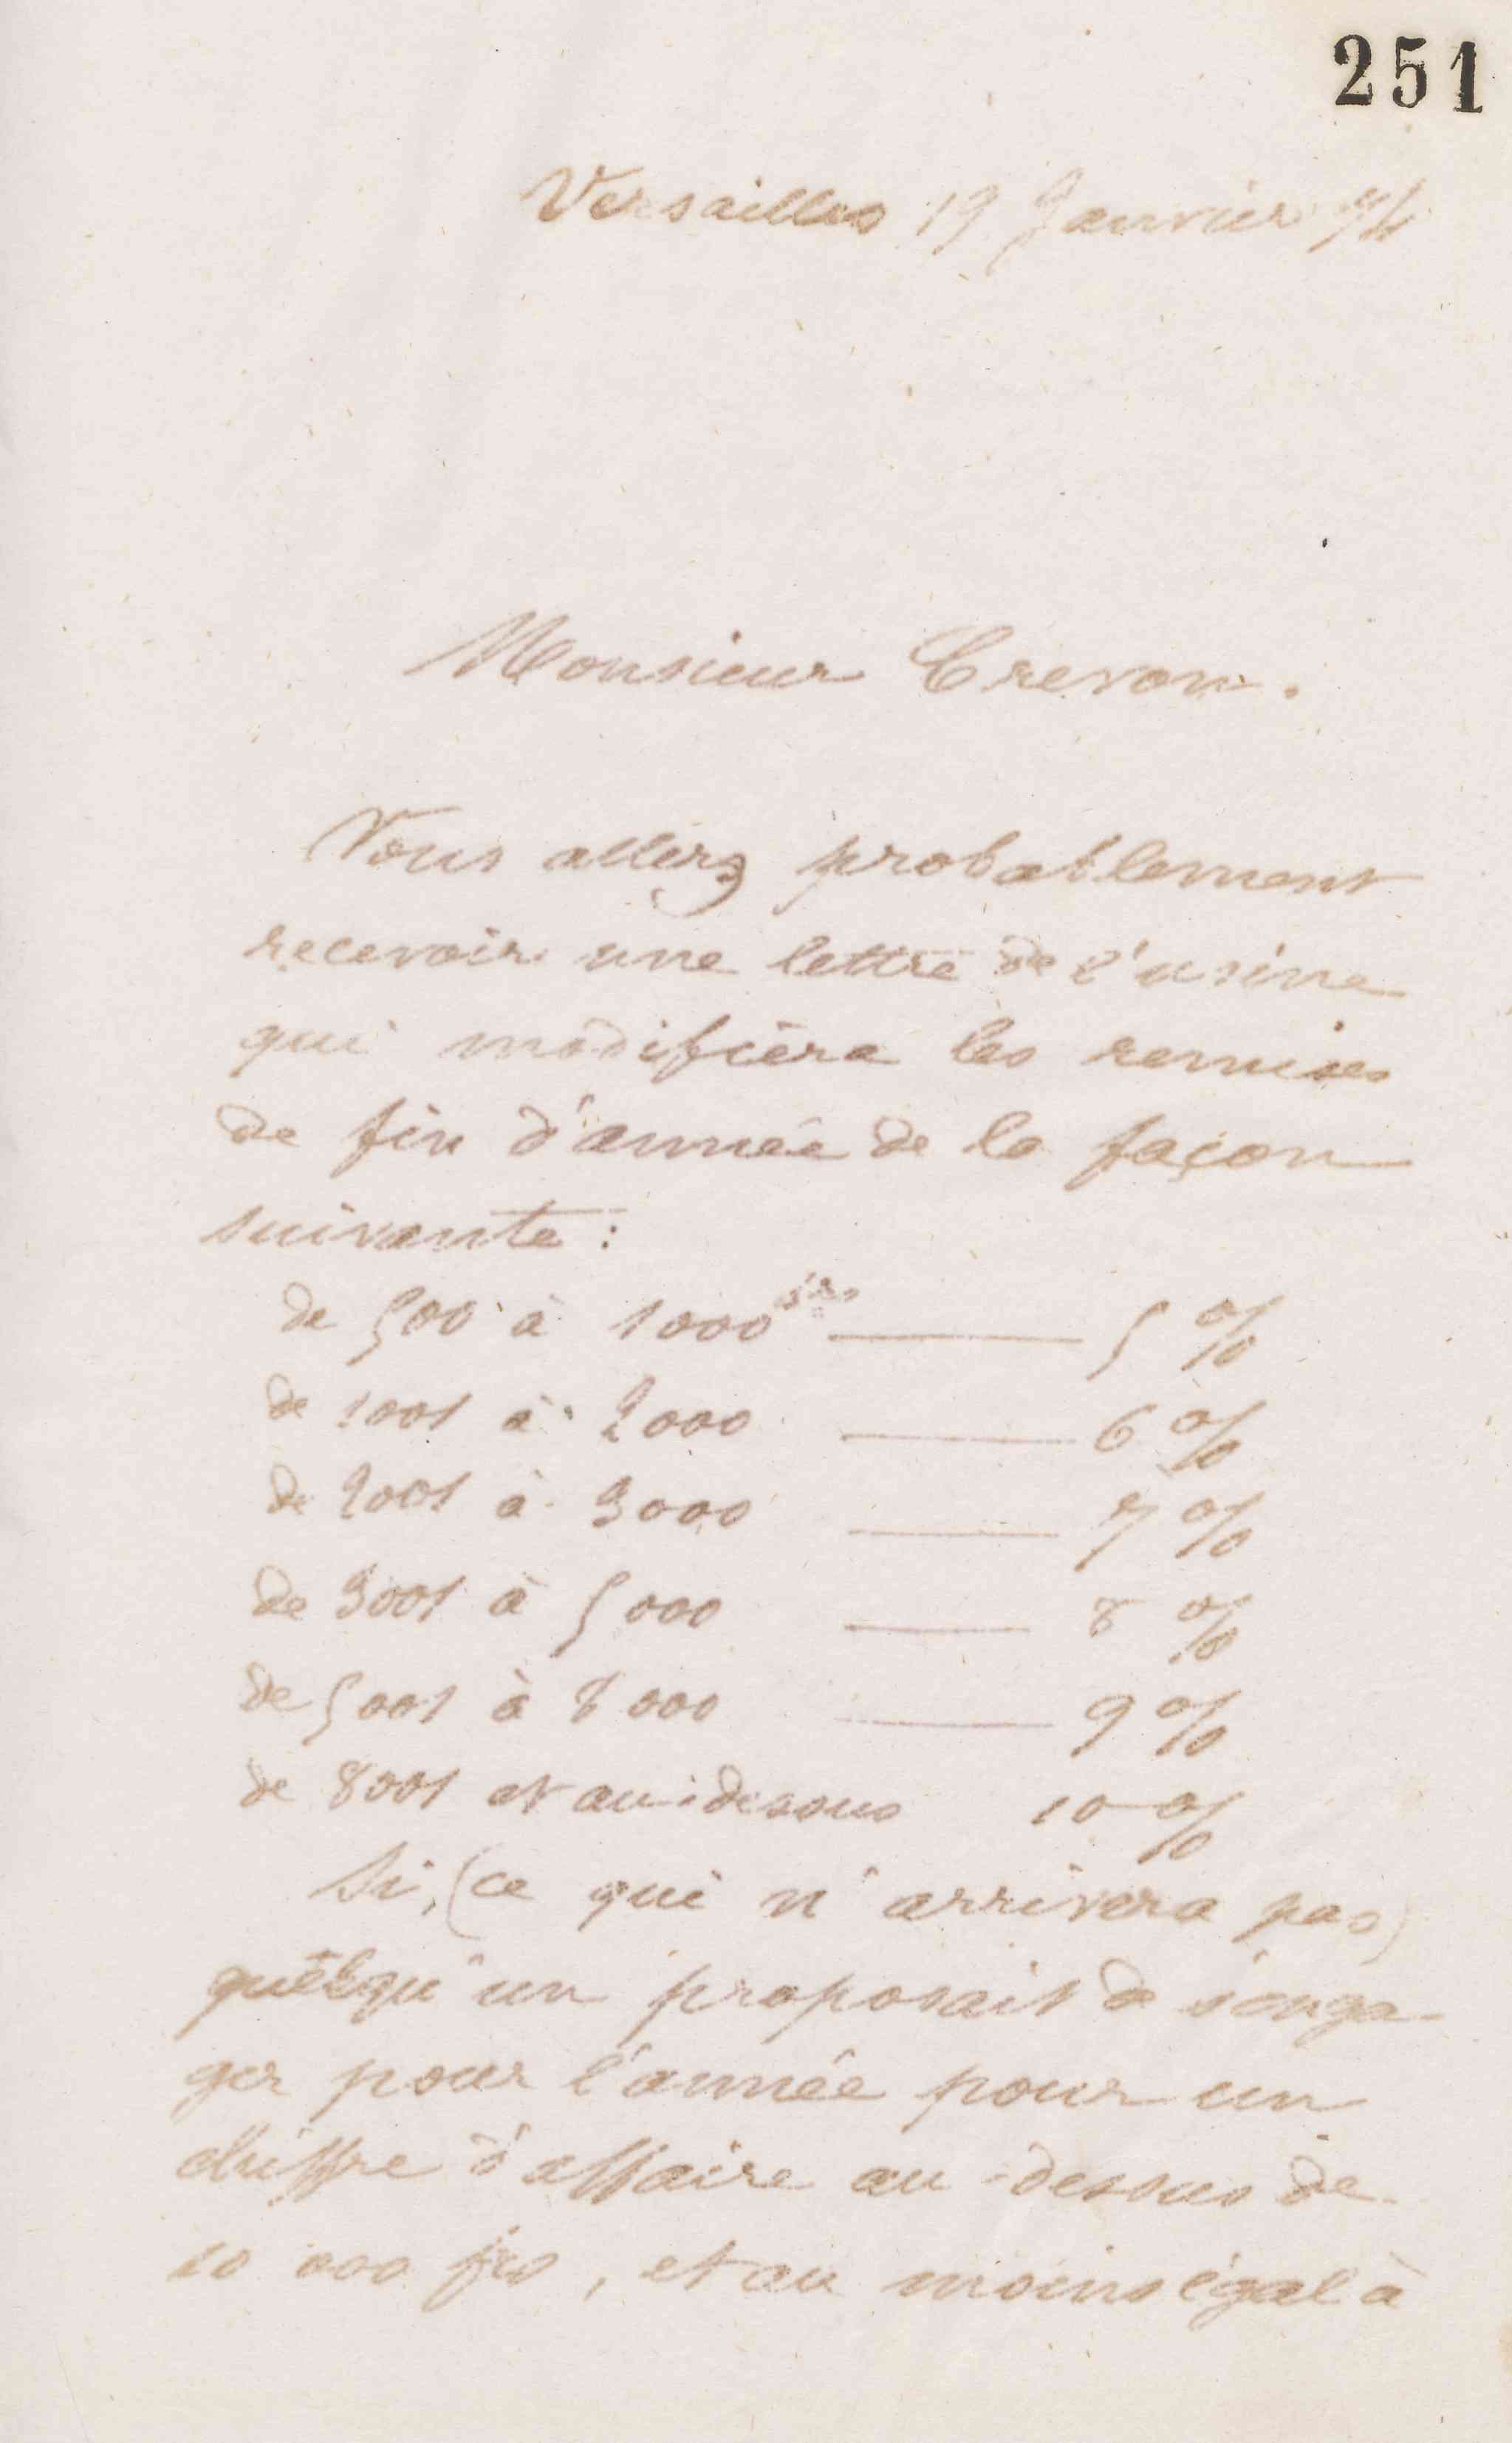 251
Versailles 19 Janvier 94
Monsieur Crevon.
Vous allez probablement
recevoir une lettre de l'usine
qui modifiera les remises
de fin d'année de la façon
suivante :
de 500 à 1000 frs —— 5 %
de 1001 à 2000 —— 6 %
de 2001 à 3000 —— 7 %
de 3001 à 5000 —— 8 %
de 5001 à 8000 —— 9 %
de 8001 et au-dessus 10 %
Si, (ce qui n'arrivera pas)
quelqu'un proposait de s'enga-
ger pour l'année pour un
chiffre d'affaire au-dessus de
10 000 frs, et au moins égal à